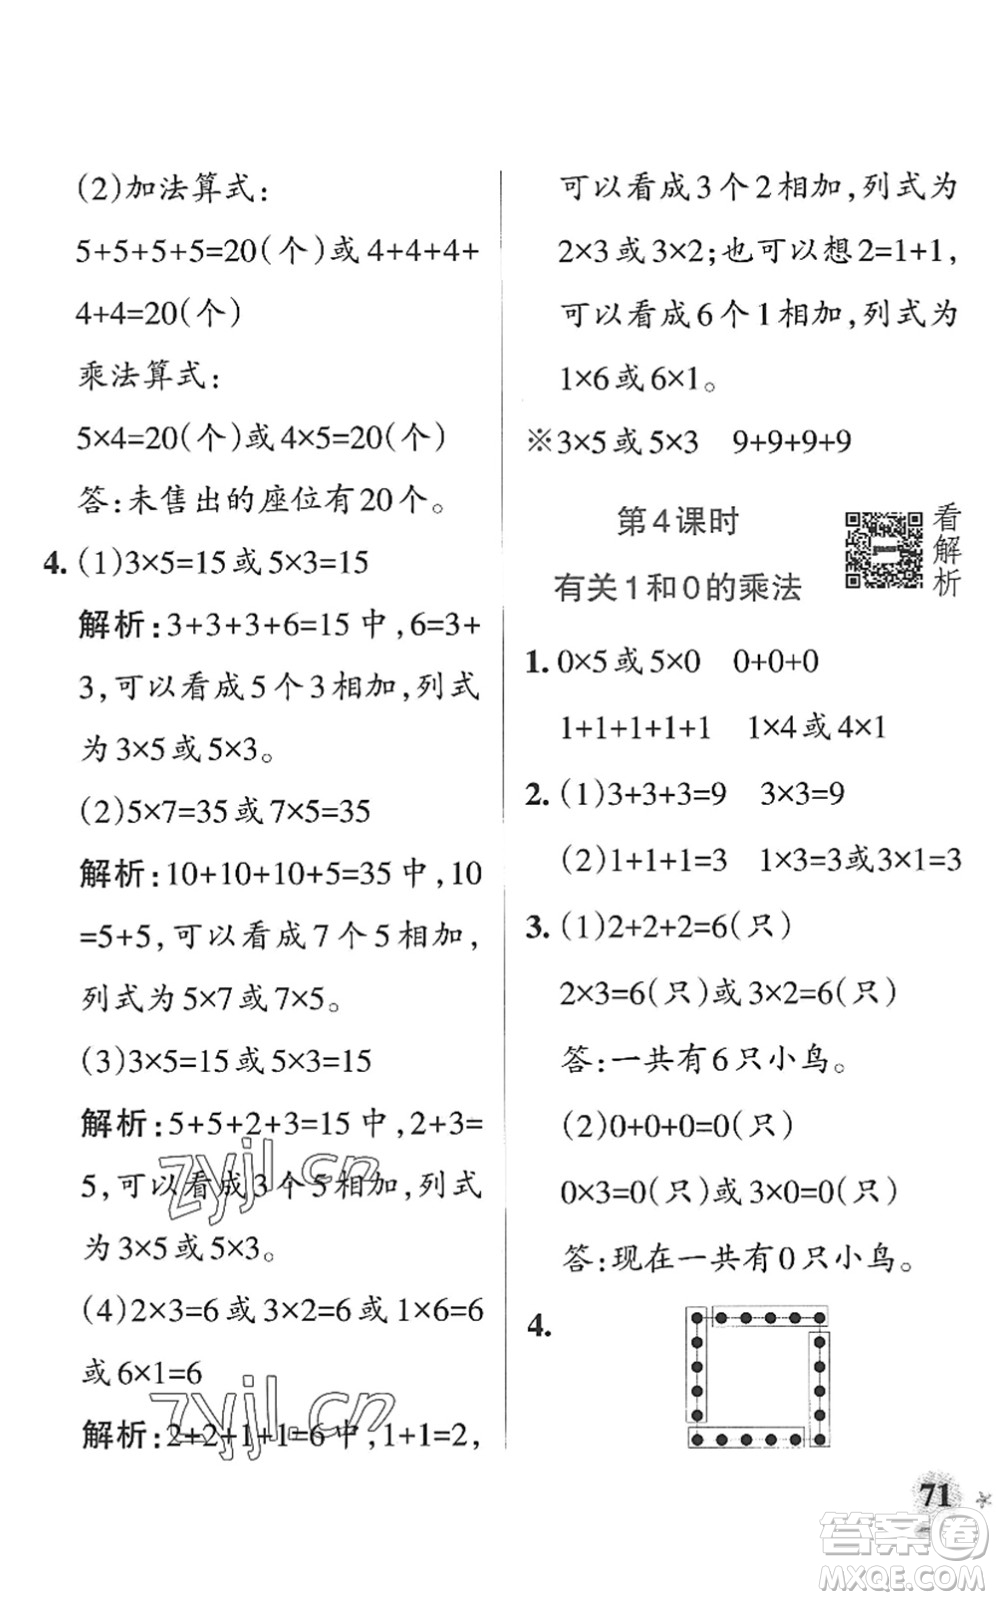 (2)加法算式:
5+5+5+5=20(个)或4+4+4+
4+4=20(个)
乘法算式:
5×4=20(个)或4×5=20(个)
答:未售出的座位有20个。
4.(1)3×5=15或5×3=15
解析:3+3+3+6=15中,6=3+
3,可以看成5个3相加,列式
为3×5或5×3。
(2)5×7=35或7×5=35
解析:10+10+10+5=35中,10
=5+5,可以看成7个5相加,
列式为5×7或7×5。
(3)3×5=15或5×3=15
解析:5+5+2+3=15中,2+3=
5,可以看成3个5相加,列式
为3×5或5×3。
(4)2×3=6或3×2=6或1×6=6
或6×1=6
解析:2+2+1+1=6中,1+1=2,
可以看成3个2相加,列式为
2×3或3×2;也可以想2=1+1,
可以看成6个1相加,列式为
1×6或6×1。
※3×5或5×3 9+9+9+9
第4课时
有关1和0的乘法
看解析
1. 0×5或5×0 0+0+0
1+1+1+1+1 1×4或4×1
2.(1)3+3+3=9 3×3=9
(2)1+1+1=3 1×3=3或3×1=3
3.(1)2+2+2=6(只)
2×3=6(只)或3×2=6(只)
答:一共有6只小鸟。
(2)0+0+0=0(只)
0×3=0(只)或3×0=0(只)
答:现在一共有0只小鸟。
4.
71
zyjl.cn
zyjl.cn
答案卷
MXQE.COM